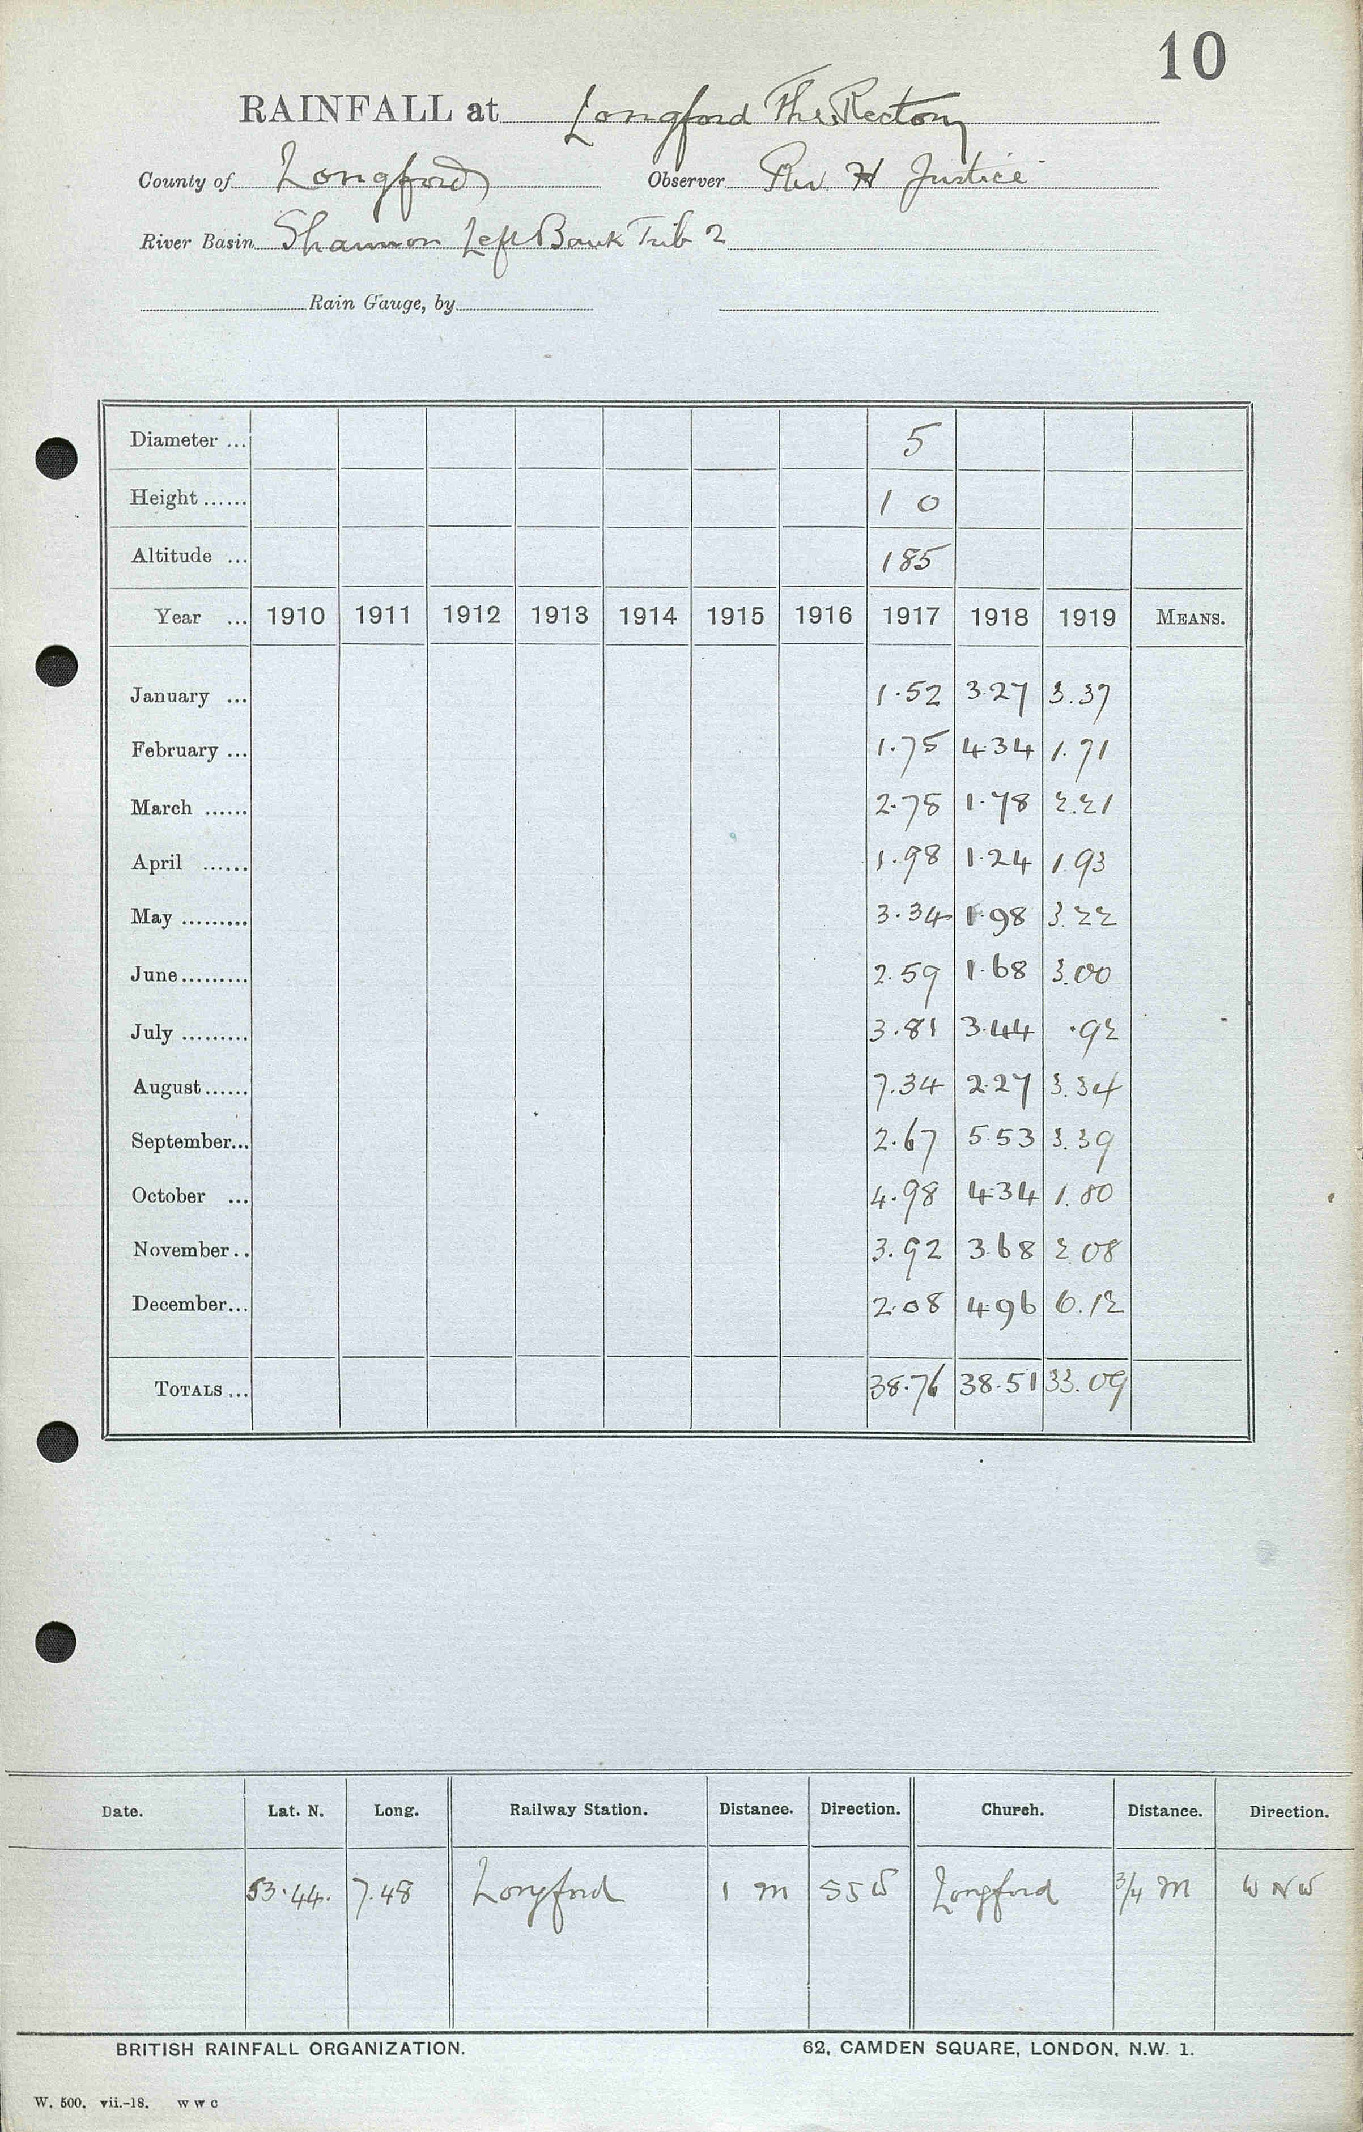 10
RAINFALL at Longford The Rectory
County of Longford Observer Rev H Justice
River Basin Shannon Left Bank Trib 2
Rain Gauge, by
Diameter ... 5
Height ...... 1 0
Altitude ... 185
Year ... 1910 1911 1912 1913 1914 1915 1916 1917 1918 1919 MEANS.
January ... 1.52 3.27 3.37
February ... 1.75 4.34 1.71
March ...... 2.78 1.78 2.21
April ...... 1.98 1.24 1.93
May ......... 3.34 1.98 3.22
June ......... 2.59 1.68 3.00
July ......... 3.81 3.44 .92
August ...... 7.34 2.27 3.34
September... 2.67 5.53 3.39
October ... 4.98 4.34 1.80
November .. 3.92 3.68 2.08
December... 2.08 4.96 6.12
TOTALS ... 38.76 38.51 33.09
Date. Lat. N. Long. Railway Station. Distance. Direction. Church. Distance. Direction.
53.44. 7.48 Longford 1 m SSW Longford 3/4 M WNW
BRITISH RAINFALL ORGANIZATION. 62, CAMDEN SQUARE, LONDON, N.W. 1.
W. 500. vii.-18. W W C